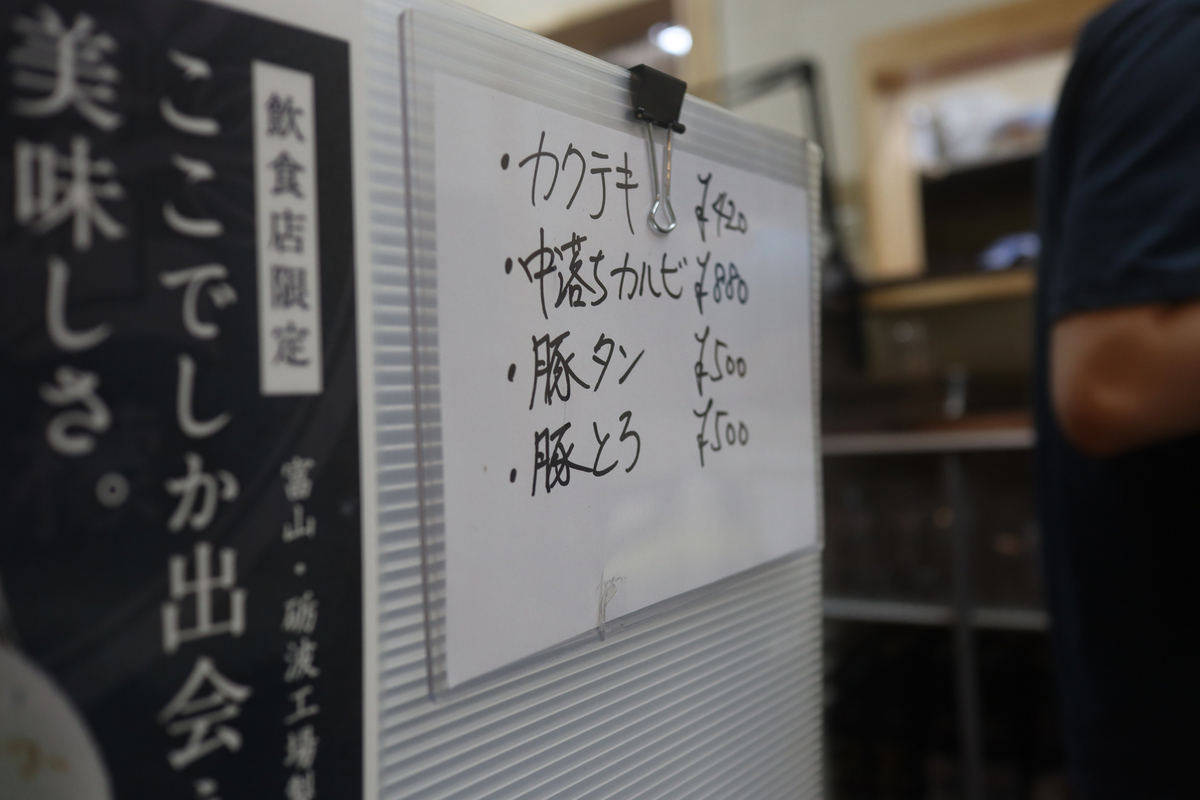 飲食店限定
ここでしか出会
美味しさ。
富山・砺波工場製
・カクテキ ¥420
・中落ちカルビ ¥880
・豚タン ¥500
・豚とろ ¥500